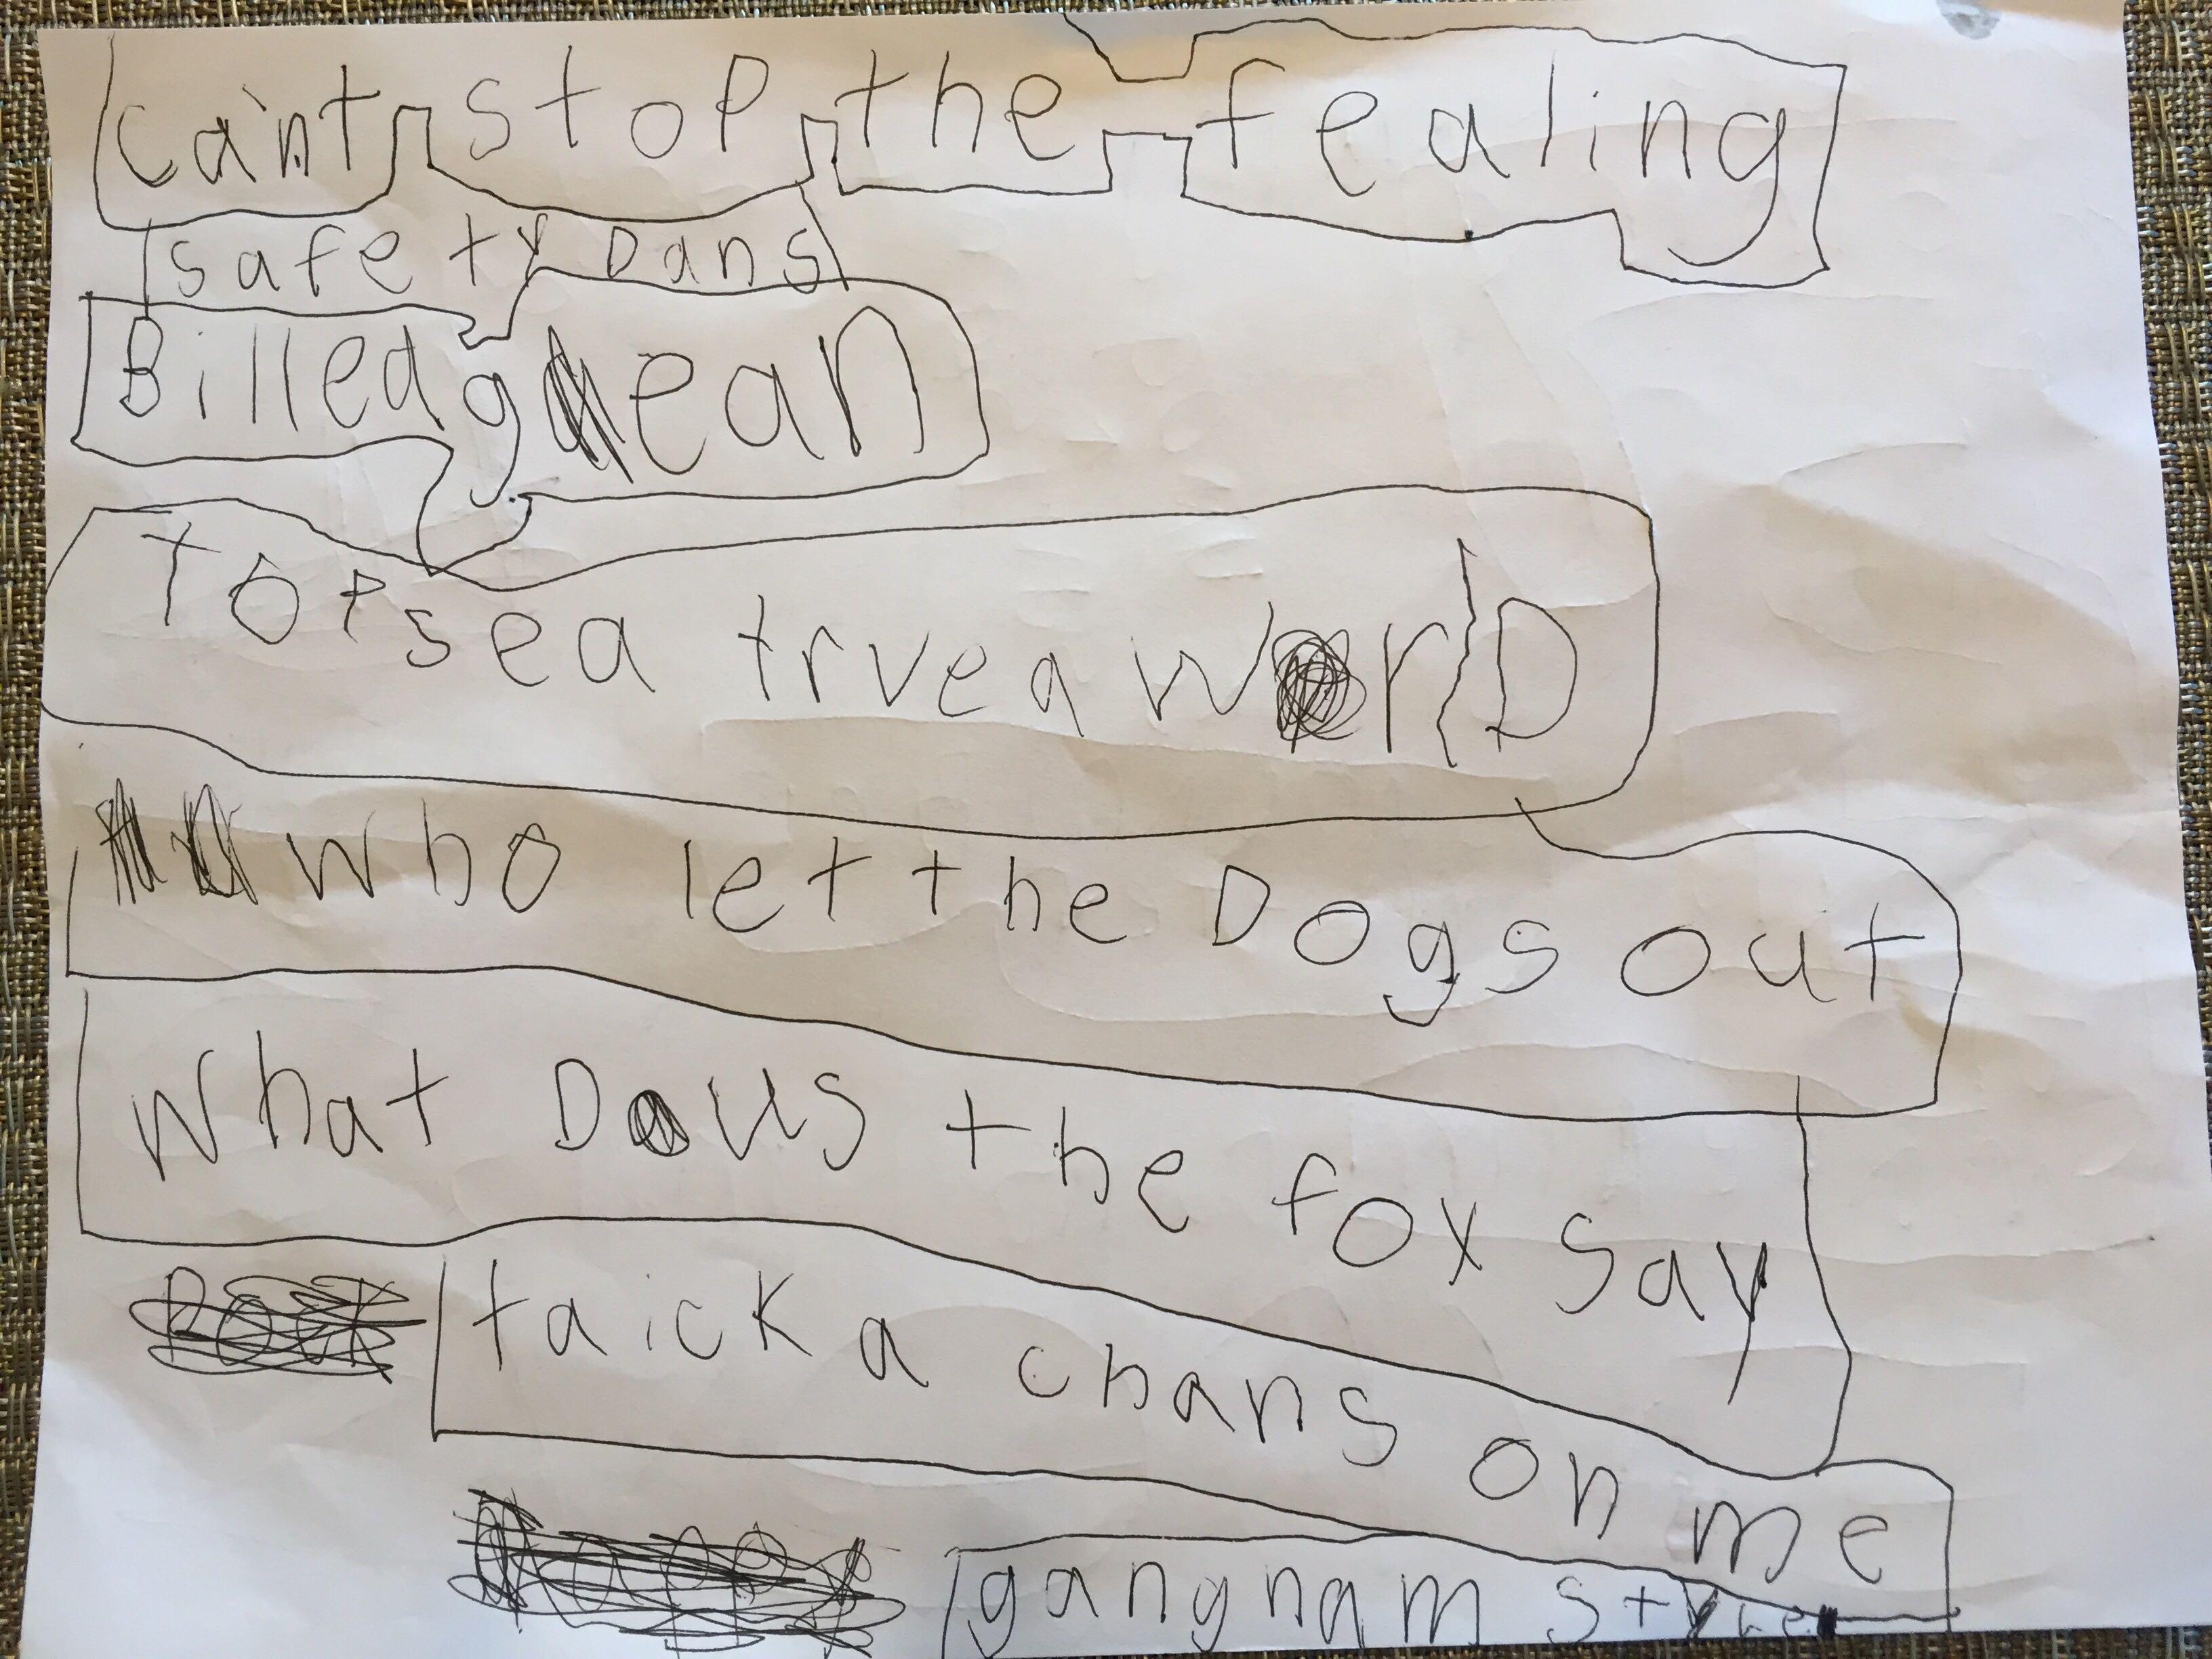 Ca'nt stop the fealing
safety Dans
Billed gean
Topsea trvea wrlD
who let the Dogs out
What Dus the fox say
taick a chans on me
gangnam style